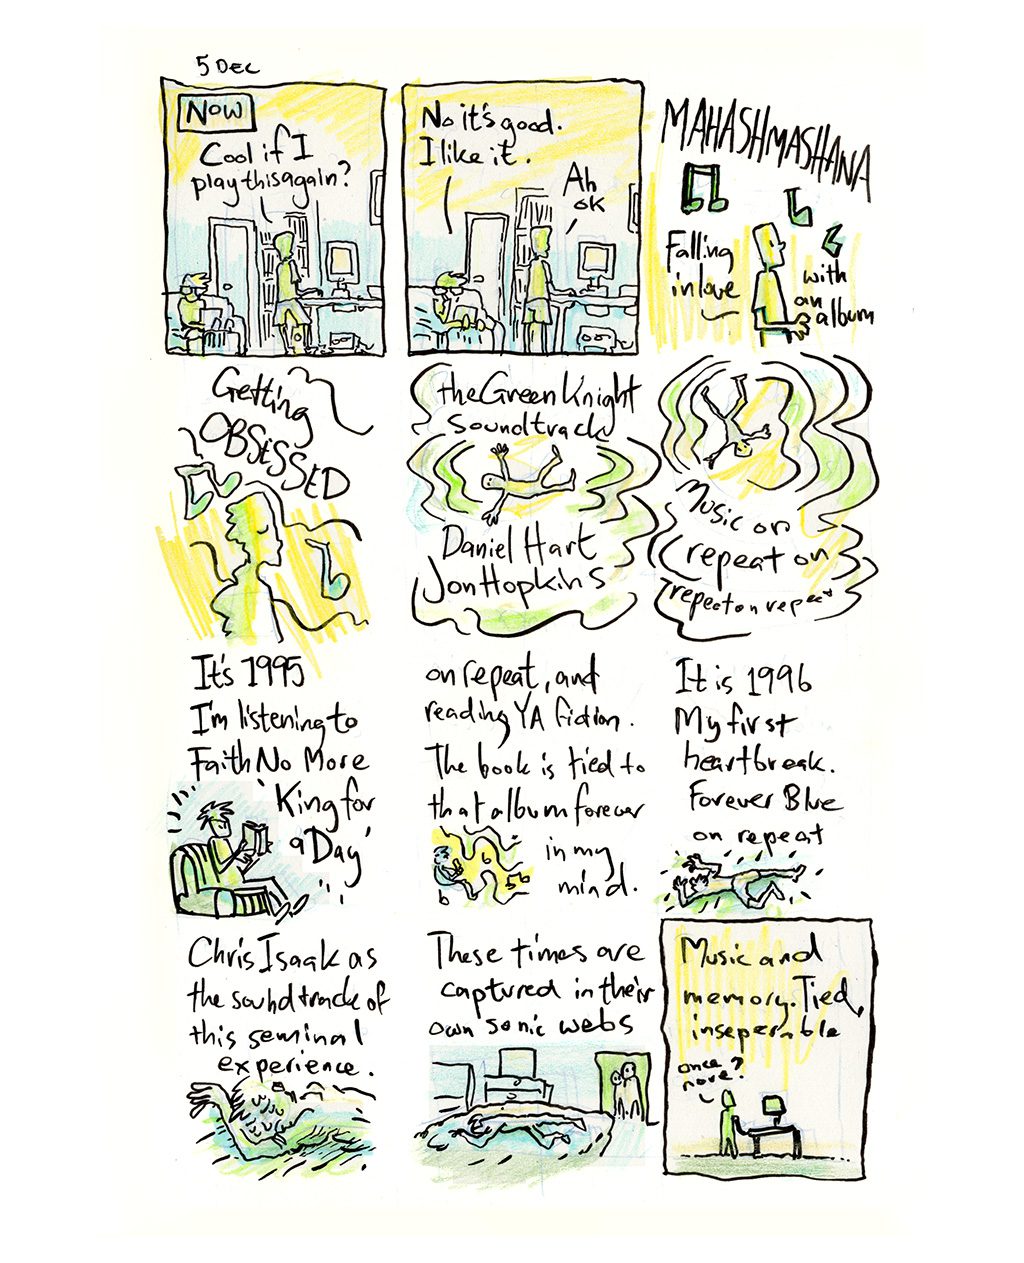 5 Dec
Now
Cool if I
play this again?
No it's good.
I like it.
Ah
ok
MAHASHMASHANA
Falling
in love
with
an
album
Getting
OBSESSED
the Green Knight
Soundtrack
Daniel Hart
Jon Hopkins
Music on
repeat on
repeat on repeat
It's 1995
I'm listening to
Faith No More
'King for
a Day'
on repeat, and
reading YA fiction.
The book is tied to
that album forever
in my
mind.
It is 1996
My first
heartbreak.
Forever Blue
on repeat
Chris Isaak as
the soundtrack of
this seminal
experience.
These times are
captured in their
own sonic webs
Music and
memory. Tied,
inseperable
once?
more?